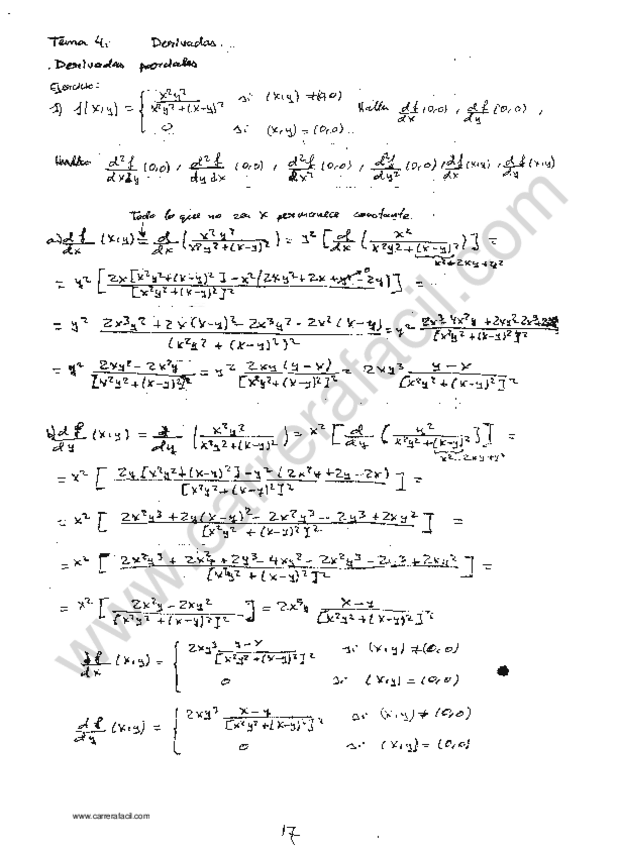 Tema 4: Derivadas...
. Derivadas parciales
Ejercicio:
1) f(x,y) = { x²y² / x²y²+(x-y)² si (x,y) ≠(0,0) Hallar df/dx (0,0) , df/dy (0,0) ,
0 si (x,y) = (0,0)..
Hallar d²f/dxdy (0,0) , d²f/dydx (0,0) , d²f/dx² (0,0) , d²f/dy² (0,0) , df/dx (x,y) , df/dy (x,y)
Todo lo que no sea x permanece constante.
a) df/dx (x,y) = d/dx ( x²y² / x²y²+(x-y)² ) = y² [ d/dx ( x² / x²y²+(x-y)² ) ] =
= y² [ 2x[x²y²+(x-y)²] - x²(2xy²+2x - 2y) / [x²y²+(x-y)²]² ] =
= y² 2x³y² + 2x(x-y)² - 2x³y² - 2x² (x-y) / (x²y² + (x-y)²)² = y²
= y² 2xy² - 2x²y / [x²y² + (x-y)²]² = y² 2xy (y-x) / [x²y² + (x-y)²]² = 2xy³ y-x / [x²y² + (x-y)²]²
b) df/dy (x,y) = d/dy ( x²y² / x²y²+(x-y)² ) = x² [ d/dy ( y² / x²y²+(x-y)² ) ] =
= x² [ 2y [x²y²+(x-y)²] - y² (2x²y + 2y - 2x) / [x²y² + (x-y)²]² ] =
= x² [ 2x²y³ + 2y(x-y)² - 2x²y³ - 2y³ + 2xy² / [x²y² + (x-y)²]² ] =
= x² [ 2x²y³ + 2x²y + 2y³ - 4xy² - 2x²y³ - 2y³ + 2xy² / [x²y² + (x-y)²]² ] =
= x² [ 2x²y - 2xy² / [x²y² + (x-y)²]² ] = 2x³y x-y / [x²y² + (x-y)²]²
df/dx (x,y) = { 2xy³ y-x / [x²y² + (x-y)²]² si (x,y) ≠(0,0)
0 si (x,y) = (0,0)
df/dy (x,y) = { 2xy³ x-y / [x²y² + (x-y)²]² si (x,y) ≠ (0,0)
0 si (x,y) = (0,0)
www.carrerafacil.com
www.carrerafacil.com
17